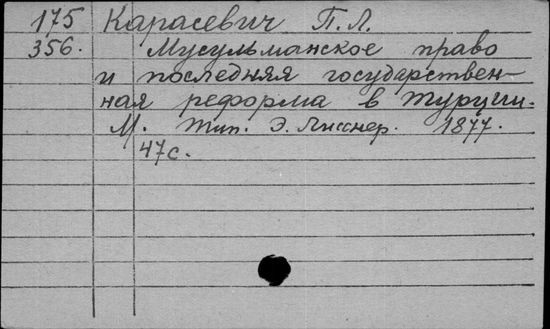 175 Карасевич П.Л.
356. Мусульманское право
и последняя государствен-
ная реформа в Турции.
М. Тип. Э. Лисснер. 1877.
47 с.